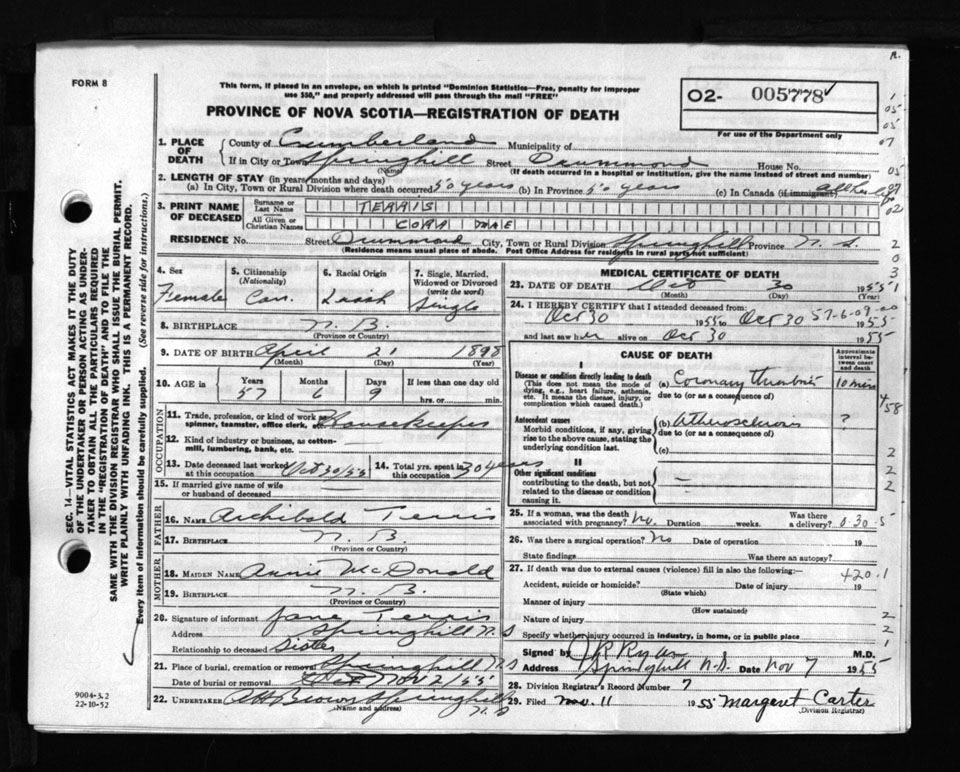 R.
FORM 8
This form, if placed in an envelope, on which is printed "Dominion Statistics—Free, penalty for improper
use $50," and properly addressed will pass through the mail "FREE"
O2- 005778
For use of the Department only
PROVINCE OF NOVA SCOTIA—REGISTRATION OF DEATH
1. PLACE OF DEATH
County of Cumberland Municipality of
If in City or Town Springhill Street Drummond House No.
(Name) (If death occurred in a hospital or institution, give its name instead of street and number)
2. LENGTH OF STAY (in years/months and days)
(a) In City, Town or Rural Division where death occurred 50 years (b) In Province 50 years (c) In Canada (if immigrant) all her life
3. PRINT NAME OF DECEASED
Surname or Last Name TERRIS
All Given or Christian Names CORA MAE
RESIDENCE No. Street Drummond City, Town or Rural Division Springhill Province N.S.
(Residence means usual place of abode. Post Office Address for residents in rural parts not sufficient)
4. Sex Female
5. Citizenship (Nationality) Can.
6. Racial Origin Irish
7. Single, Married, Widowed or Divorced (write the word) Single
8. BIRTHPLACE N.B.
9. DATE OF BIRTH April 21 1898
(Month) (Day) (Year)
10. AGE in Years Months Days If less than one day old
57 6 9 hrs. or min.
OCCUPATION
11. Trade, profession, or kind of work as spinner, teamster, office clerk, Housekeeper
12. Kind of industry or business, as cotton-mill, lumbering, bank, etc.
13. Date deceased last worked at this occupation Oct 30/55
14. Total yrs. spent in this occupation 30 years
15. If married give name of wife or husband of deceased
FATHER
16. NAME Archibald Terris
17. BIRTHPLACE N.B.
(Province or Country)
MOTHER
18. MAIDEN NAME Annie McDonald
19. BIRTHPLACE N.B.
(Province or Country)
20. Signature of informant Jane Terris
Address Springhill N.S
Relationship to deceased Sister
21. Place of burial, cremation or removal Springhill N.S
Date of burial or removal Oct Nov 2/55
22. UNDERTAKER A H Brown Springhill
(Name and address) N.S
MEDICAL CERTIFICATE OF DEATH
23. DATE OF DEATH Oct 30 1955
(Month) (Day) (Year)
24. I HEREBY CERTIFY that I attended deceased from
Oct 30 1955 to Oct 30 1955
57-6-09-00
and last saw her alive on Oct 30 1955
CAUSE OF DEATH
Approximate interval between onset and death
I
Disease or condition directly leading to death
(This does not mean the mode of dying, e.g., heart failure, asthenia, etc. It means the disease, injury, or complication which caused death.)
(a) Coronary thrombosis 10 min
due to (or as a consequence of)
Antecedent causes
Morbid conditions, if any, giving rise to the above cause, stating the underlying condition last.
(b) Atherosclerosis ?
due to (or as a consequence of)
(c)
II
Other significant conditions
contributing to the death, but not related to the disease or condition causing it.
25. If a woman, was the death associated with pregnancy? No. Duration weeks. Was there a delivery?
0-30-5
26. Was there a surgical operation? No Date of operation 19
State findings Was there an autopsy?
27. If death was due to external causes (violence) fill in also the following:—
420.1
Accident, suicide or homicide? Date of injury 19
(State which)
Manner of injury
(How sustained)
Nature of injury
Specify whether injury occurred in industry, in home, or in public place
Signed by J R Ryan M.D.
Address Springhill N.S. Date Nov 7 1955
28. Division Registrar's Record Number 7
29. Filed Nov. 11 1955 Margaret Carter
(Division Registrar)
SEC. 14—VITAL STATISTICS ACT MAKES IT THE DUTY
OF THE UNDERTAKER OR PERSON ACTING AS UNDER-
TAKER TO OBTAIN ALL THE PARTICULARS REQUIRED
IN THE "REGISTRATION OF DEATH" AND TO FILE THE
SAME WITH THE DIVISION REGISTRAR WHO SHALL ISSUE THE BURIAL PERMIT.
WRITE PLAINLY WITH UNFADING INK. THIS IS A PERMANENT RECORD.
Every item of information should be carefully supplied. (See reverse side for instructions.)
9004-3.2
22-10-52